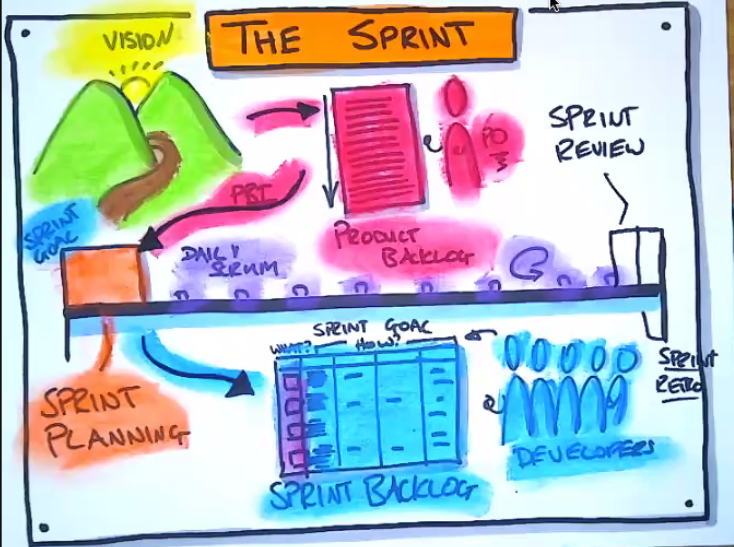 THE SPRINT
VISION
SPRINT
REVIEW
PO
PBI
SPRINT
GOAL
PRODUCT
BACKLOG
DAILY
SCRUM
SPRINT GOAL
WHAT?
HOW?
SPRINT
RETRO
SPRINT
PLANNING
DEVELOPERS
SPRINT BACKLOG